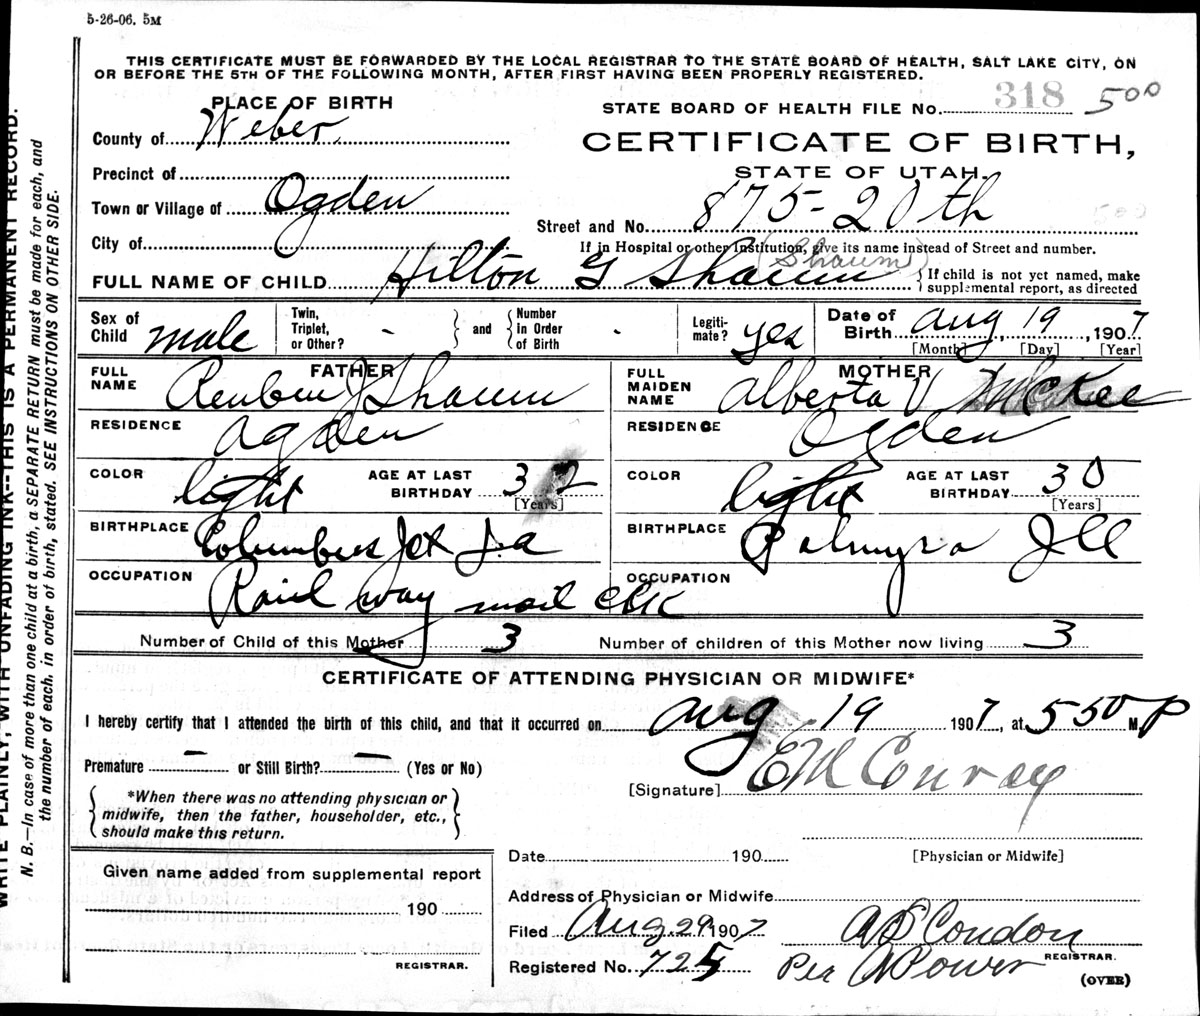 5-26-06. 5M
THIS CERTIFICATE MUST BE FORWARDED BY THE LOCAL REGISTRAR TO THE STATE BOARD OF HEALTH, SALT LAKE CITY, ON
OR BEFORE THE 5TH OF THE FOLLOWING MONTH, AFTER FIRST HAVING BEEN PROPERLY REGISTERED.
PLACE OF BIRTH
County of Weber
Precinct of
Town or Village of Ogden
City of
STATE BOARD OF HEALTH FILE No. 318 500
CERTIFICATE OF BIRTH,
STATE OF UTAH.
Street and No. 875-20th
500
If in Hospital or other Institution, give its name instead of Street and number.
(Shaum)
FULL NAME OF CHILD Hilton G Shaum { If child is not yet named, make
supplemental report, as directed
Sex of Child male
Twin, Triplet, or Other? - } and { Number in Order of Birth -
Legitimate? yes
Date of Birth Aug 19, 1907
[Month] [Day] [Year]
FATHER
FULL NAME Reuben J Shaum
RESIDENCE Ogden
COLOR light AGE AT LAST BIRTHDAY 32
[Years]
BIRTHPLACE Columbus Jct
OCCUPATION Rail way mail clk
MOTHER
FULL MAIDEN NAME Alberta V McKee
RESIDENCE Ogden
COLOR light AGE AT LAST BIRTHDAY 30
[Years]
BIRTHPLACE Palmyra Ill
OCCUPATION
Number of Child of this Mother 3 Number of children of this Mother now living 3
CERTIFICATE OF ATTENDING PHYSICIAN OR MIDWIFE*
I hereby certify that I attended the birth of this child, and that it occurred on Aug 19 1907, at 550 P M
Premature — or Still Birth? — (Yes or No)
{ *When there was no attending physician or
midwife, then the father, householder, etc.,
should make this return. }
[Signature] E M Conroy
Date 190 [Physician or Midwife]
Given name added from supplemental report
190
REGISTRAR.
Address of Physician or Midwife
Filed Aug 29 1907 A S Condon
REGISTRAR.
Registered No. 725 Per A Power
(OVER)
WRITE PLAINLY, WITH UNFADING INK--THIS IS A PERMANENT RECORD.
N. B.—In case of more than one child at a birth, a SEPARATE RETURN must be made for each, and
the number of each. in order of birth, stated. SEE INSTRUCTIONS ON OTHER SIDE.